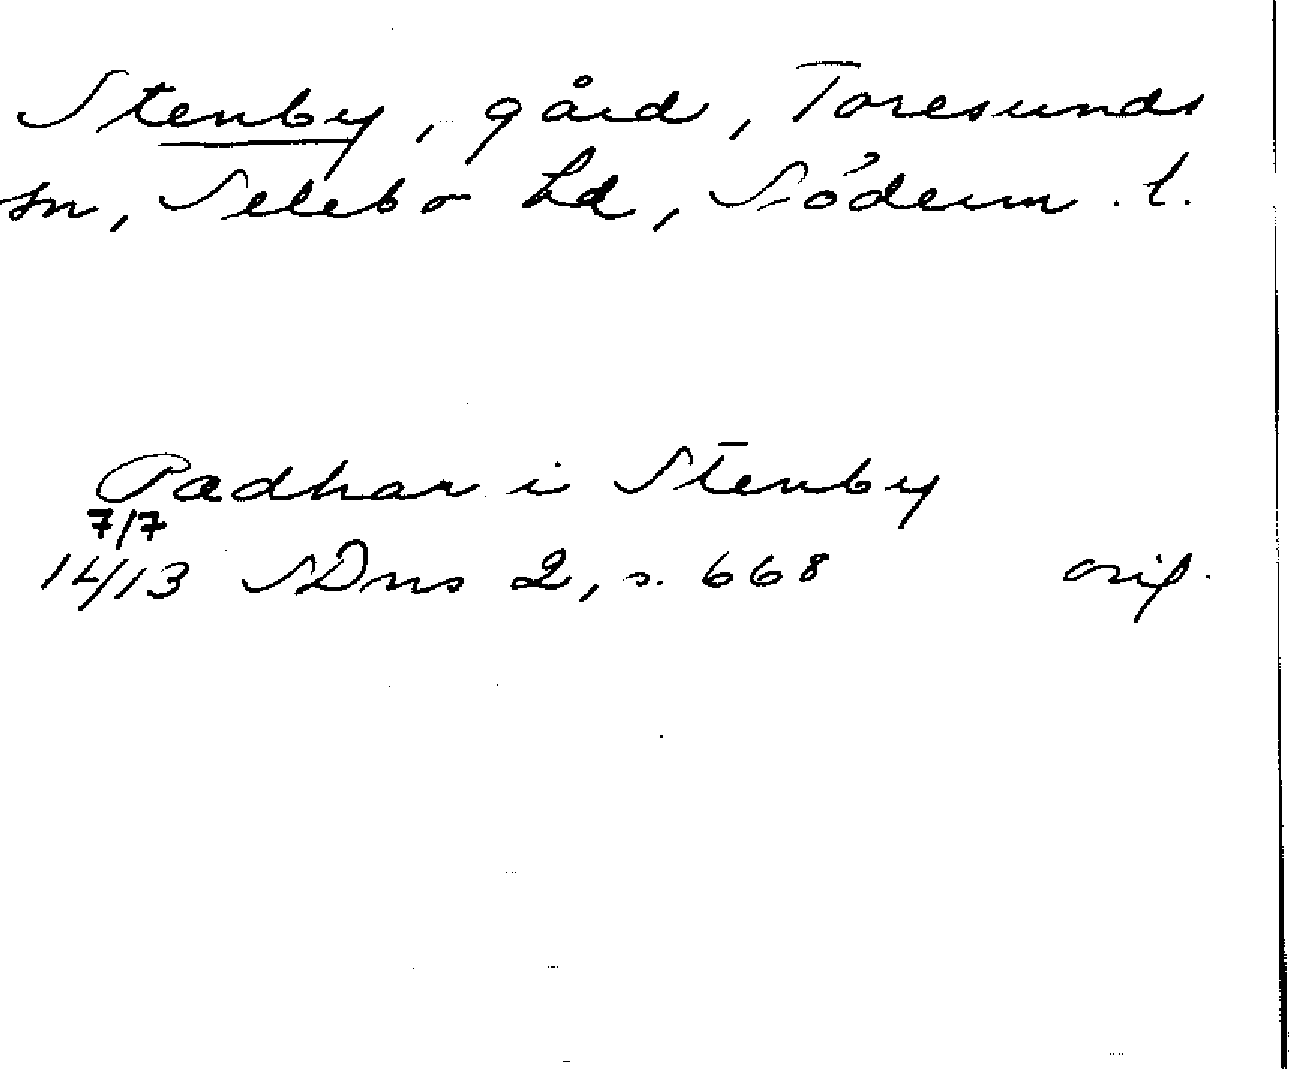 Stenby, gård, Toresunds
sn, Selebo hd, Söderm. l.
Pædhar i Stenby
7/7
1413 SDns 2, s. 668 orig.